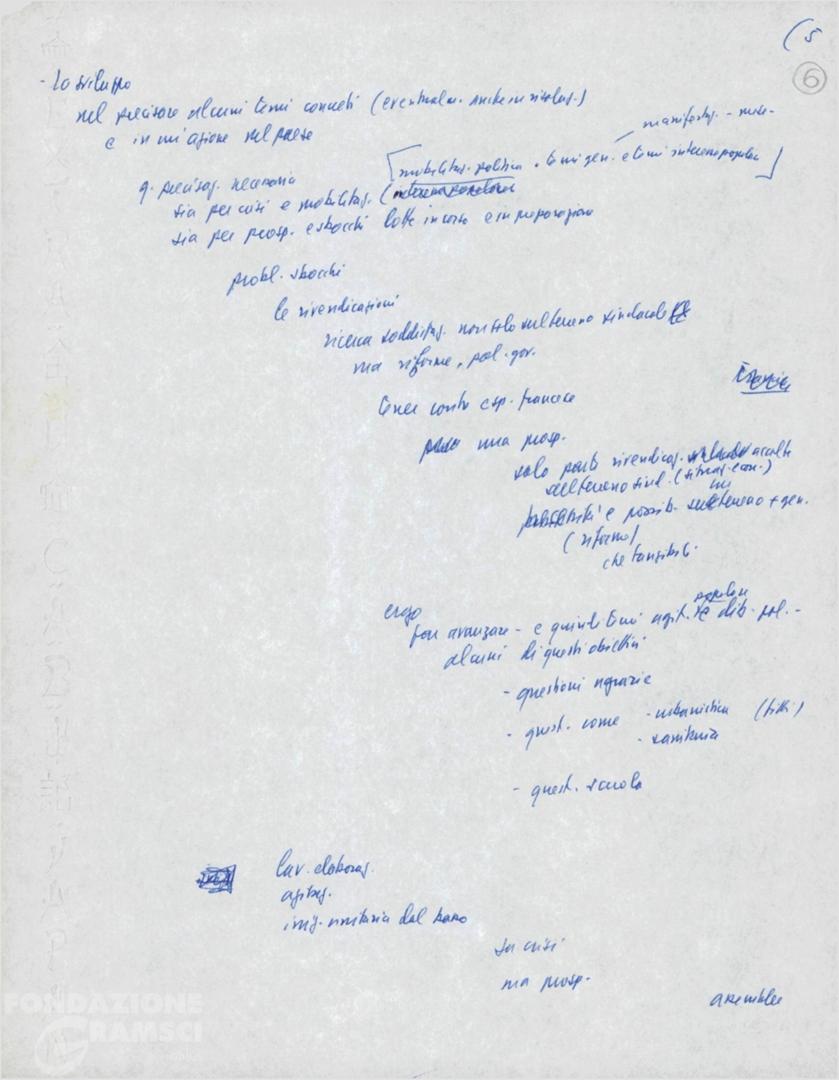 (5
6
- Lo sviluppo
nel precisare alcuni temi concreti (eventualm. anche in risoluz.)
e in un'azione nel paese
manifestaz. -
q. precisaz. necessaria [mobilitaz. politica temi gen. e temi interesse popolare]
sia per crisi e mobilitaz. (
sia per prosp. e sbocchi lotte in corso e in preparazione
probl. sbocchi
le rivendicazioni
ricerca soddisfaz. non solo sul terreno sindacale
ma riforme, pol. gov.
tener conto esp. francese
una prosp.
solo parte rivendicaz. accolte
sul terreno sind. (situaz. econ.)
e possib. su terreno + gen.
(riforme)
che tangibili.
ergo
popolare
far avanzare - e quindi temi agit. e dib. pol. -
alcuni di questi obiettivi
- questioni agrarie
- quest. come - urbanistica (fitti)
- sanitaria
- quest. scuola
lav. elaboraz.
agitaz.
iniz. unitaria dal basso
su crisi
ma prosp.
assemblee
FONDAZIONE
GRAMSCI